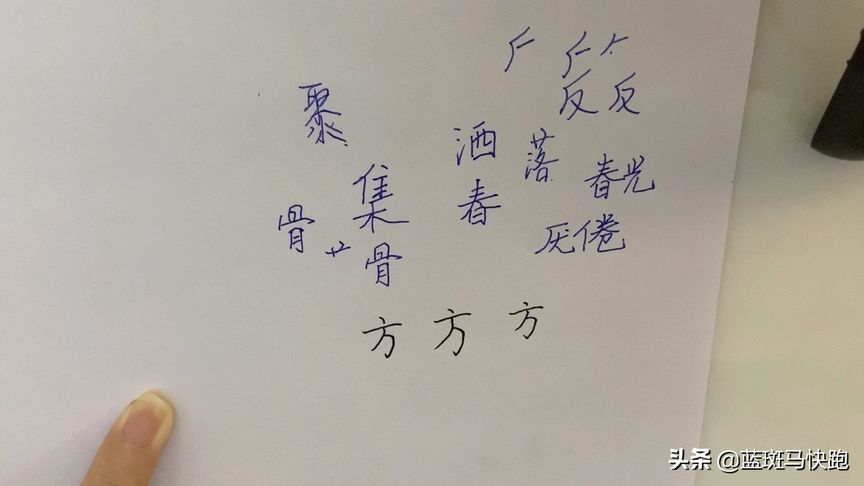 聚
反反
洒
落
集
春光
骨
春
厌倦
骨
方方方
头条 @蓝斑马快跑